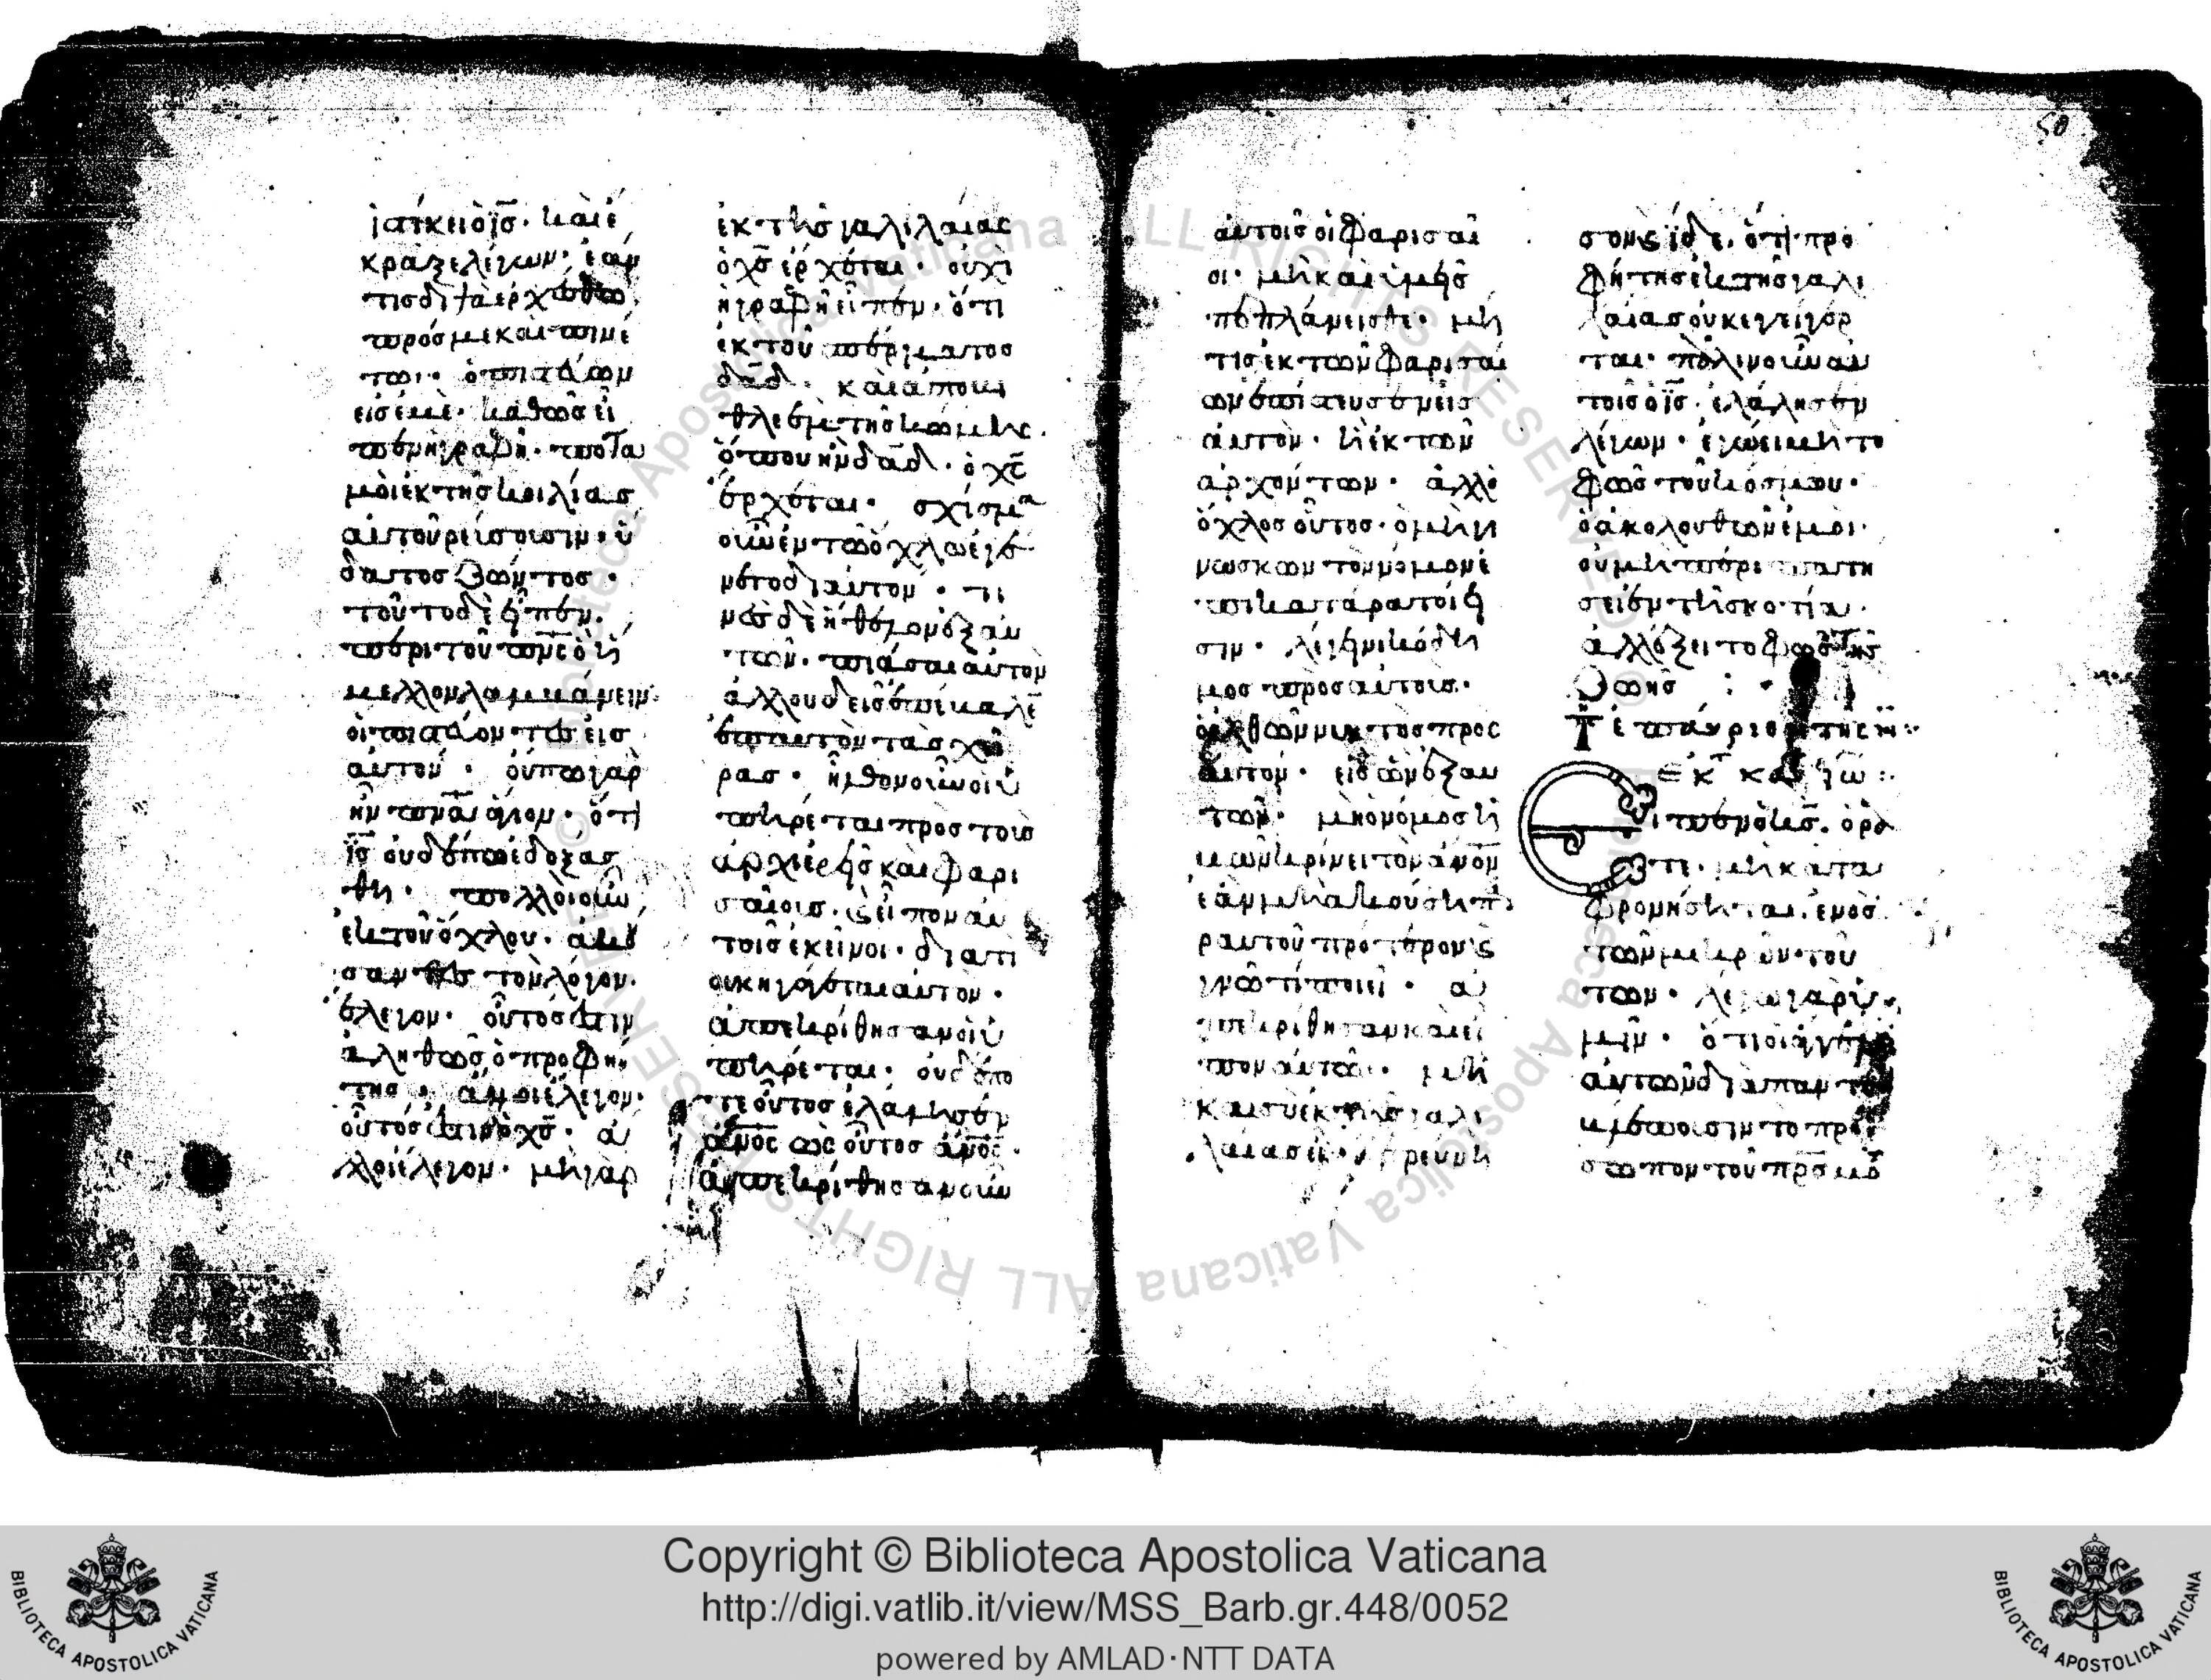 ἱστήκει ὁ ῑς̄· καὶ ἔ
κραξε λέγων· ἐάν
τις διψᾶ ἐρχέσθω
πρός με καὶ πινέ
τω· ὁ πιστεύων
εἰς ἐμέ· καθὼς εἶ
πεν ἡ γραφή· ποτα
μοὶ ἐκ τῆς κοιλίας
αὐτοῦ ρεύσουσιν· ὕ
δατος ζῶντος·
τοῦτο δὲ εἶπεν·
περὶ τοῦ π̅ν̅ς̅ οὗ
μελλον λαμβάνειν·
οἱ πιστεύοντες εἰς
αὐτόν· οὔπω γὰρ
ἦν π̅ν̅α̅ ἅγιον· ὅτι
ι̅ς̅ οὐδέπω ἐδοξάσ
θη· πολλοὶ οὖν
ἐκ τοῦ ὄχλου· ἀκού
σαντες τὸν λόγον·
ἔλεγον· οὗτός ἐστιν
ἀληθῶς ὁ προφή
της· ἄλλοι ἔλεγον·
οὗτός ἐστιν ὁ χ̅ς̅· ἄλ
λοι ἔλεγον· μὴ γὰρ
ἐκ τῆς γαλιλαίας
ὁ χ̅ς̅ ἔρχεται· οὐχὶ
ἡ γραφὴ εἶπεν· ὅτι
ἐκ τοῦ σπέρματος
δ̅α̅δ̅· καὶ ἀπὸ βη
θλεὲμ τῆς κώμης·
ὅπου ἦν δ̅α̅δ̅· ὁ χ̅ς̅
ἔρχεται· σχίσμα
οὖν ἐν τῶ ὄχλω ἐγέ
νετο δι αὐτόν· τι
νὲς δὲ ἤθελον ἐξ αὐ
τῶν· πιάσαι αὐτὸν
ἀλλ οὐδεὶς ἐπέβαλεν
ἐπ αὐτὸν τὰς χεῖ
ρας· ἦλθον οὖν οἱ ὑ
πηρέται πρὸς τοὺς
ἀρχιερεῖς καὶ φαρι
σαίους· καὶ εἶπον αὐ
τοῖς ἐκεῖνοι· διατί
οὐκ ἠγάγετε αὐτόν·
ἀπεκρίθησαν οἱ ὑ
πηρέται· οὐδέπο
τε οὗτος ἐλάλησεν
ἄ̅ν̅ο̅ς̅ ὡς οὗτος ὁ ἄ̅ν̅ο̅ς̅·
ἀπεκρίθησαν οὖν
αὐτοῖς οἱ φαρισαῖ
οι· μὴ καὶ ὑμεῖς
πεπλάνησθε· μή
τις ἐκ τῶν φαρισαί
ων ἐπίστευσεν εἰς
αὐτόν· ἢ ἐκ τῶν
ἀρχόντων· ἀλλ ὁ
ὄχλος οὗτος· ὁ μὴ γι
νώσκων τὸν νόμον ἐ
πικατάρατοί εἰ
σιν· λέγει νικόδη
μος πρὸς αὐτούς·
ὁ ἐλθὼν νυκτὸς πρὸς
αὐτόν· εἷς ὢν ἐξ αὐ
τῶν· μὴ ὁ νόμος ἡ
μῶν κρίνει τὸν ἄ̅ν̅ο̅ν̅
ἐὰν μὴ ἀκούση πα
ρ αὐτοῦ πρότερον καὶ
γνῶ τί ποιεῖ· ἀ
πεκρίθησαν καὶ εἶ
πον αὐτῶ· μὴ
καὶ σὺ ἐκ τῆς γαλι
λαίας εἶ· ἐρεύνη
σον καὶ ἴδε· ὅτι προ
φήτης ἐκ τῆς γαλι
λαίας οὐκ ἐγήγερ
ται· πάλιν οὖν αὐ
τοῖς ὁ ι̅ς̅· ἐλάλησεν
λέγων· ἐγώ εἰμι τὸ
φῶς τοῦ κόσμου·
ὁ ἀκολουθῶν ἐμοὶ·
οὐ μὴ περιπατή
σει ἐν τῆ σκοτία·
ἀλλ ἕξει τὸ φῶς τῆς
ζωῆς :
Τῆ ἐπαύριον τῆς ν̅
ἐκ τ κα
Εἶπεν ὁ κ̅ς̅· ὁρᾶ
τε· μὴ κατα
φρονήσηται ἑνὸς
τῶν μικρῶν τού
των· λέγω γὰρ ὑ
μῖν· ὅτι οἱ ἄγγελοι
αὐτῶν διαπαντὸς
βλέπουσιν τὸ πρό
σωπον τοῦ π̅ρ̅ς̅ μου
58
Copyright © Biblioteca Apostolica Vaticana
http://digi.vatlib.it/view/MSS_Barb.gr.448/0052
powered by AMLAD·NTT DATA
BIBLIOTECA APOSTOLICA VATICANA
BIBLIOTECA APOSTOLICA VATICANA